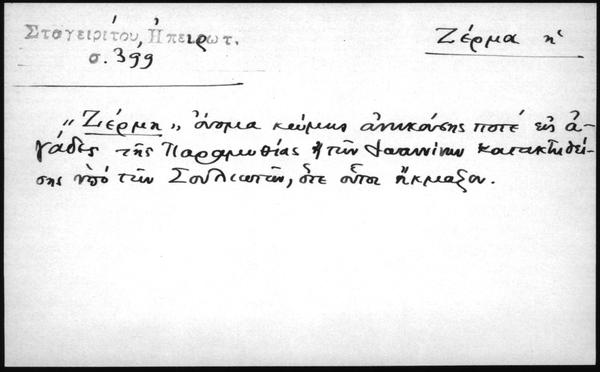 Σταγειρίτου, Ἠπειρωτ.
σ. 399
Ζέρμα ἡ
"Ζέρμη", ὄνομα κώμης ἀνηκούσης ποτέ εἰς ἀ-
γάδες τῆς Παραμυθίας ἢ τῶν Ἰωαννίνων κατακτηθεί-
σης ὑπό τῶν Σουλιωτῶν, ὅτε οὗτοι ἤκμαζον.